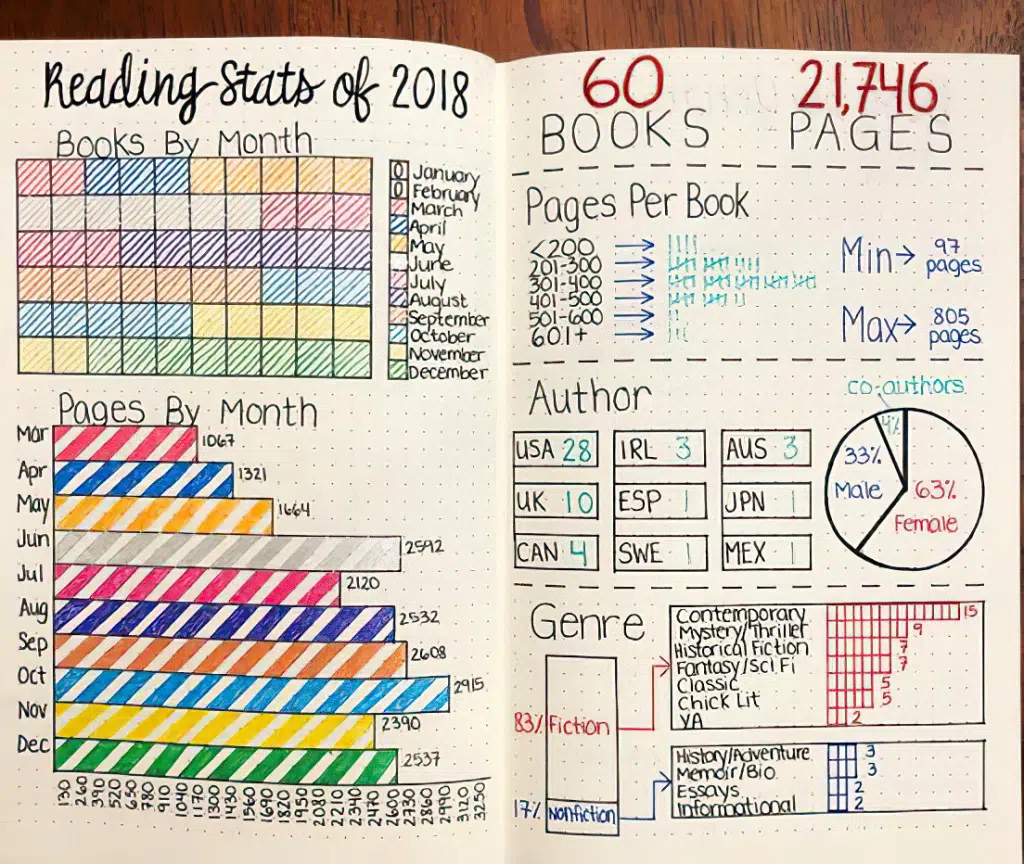 Reading Stats of 2018
Books By Month
0 January
0 February
March
April
May
June
July
August
September
October
November
December
Pages By Month
Mar 1067
Apr 1321
May 1664
Jun 2592
Jul 2120
Aug 2532
Sep 2608
Oct 2915
Nov 2390
Dec 2537
130 260 390 520 650 780 910 1040 1170 1300 1430 1560 1690 1820 1950 2080 2210 2340 2470 2600 2730 2860 2990 3120 3250
60 21,746
BOOKS PAGES
Pages Per Book
<200
201-300
301-400
401-500
501-600
601+
Min→ 97 pages
Max→ 805 pages
Author
USA 28 IRL 3 AUS 3
UK 10 ESP 1 JPN 1
CAN 4 SWE 1 MEX 1
co-authors
4%
33% Male
63% Female
Genre
83% Fiction
17% Nonfiction
Contemporary 15
Mystery/Thriller 9
Historical Fiction 7
Fantasy/Sci Fi 7
Classic 5
Chick Lit 5
YA 2
History/Adventure 3
Memoir/Bio 3
Essays 2
Informational 2